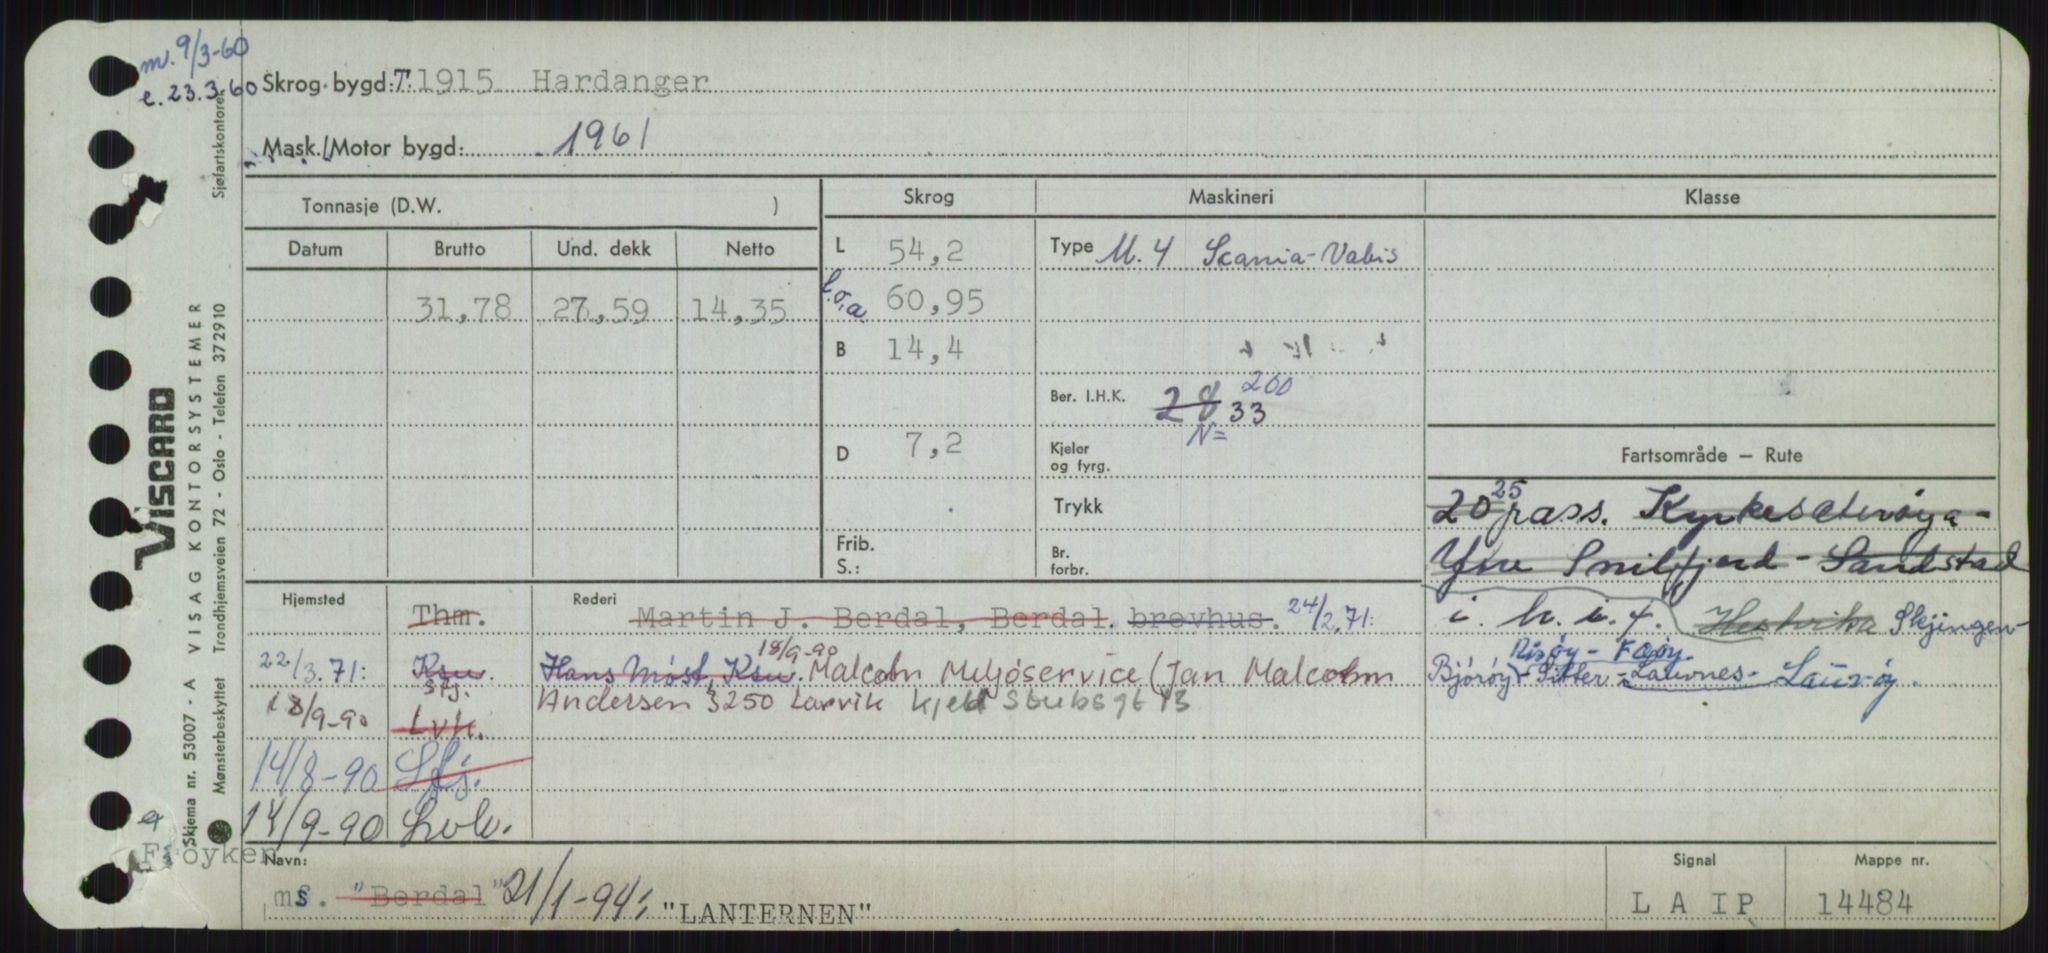 m. 9/3-60
e. 23.3.60
Skrog bygd: T. 1915 Hardanger
Mask./Motor bygd: 1961
Sjøfartskontoret
Tonnasje (D.W. )
Skrog
Maskineri
Klasse
Datum Brutto Und. dekk Netto
L 54,2
Type M. 4 Scania-Vabis
31,78 27,59 14,35
l.o.a. 60,95
B 14,4
Ber. I.H.K. 28 33 260
N=
D 7,2
Kjeler
og fyrg.
Fartsområde — Rute
Trykk
20 25 pass. Kyrkesæterøya -
Frib.
S.:
Br.
forbr.
Ytre Snilfjord - Sandstad
Hjemsted Thm.
Rederi Martin J. Berdal, Berdal. brevhus. 24/2.71:
i. h. i. f. Hestvika Skjingen-
22/3.71: Ksu. Hans Møst, Ksu. 18/9-90 Malcolm Meljøservice (Jan Malcolm
Sfj.
Risøy - Fosøy.
Bjørøy - Sitter - Lauvnes - Lauvøy.
18/9-90 Lvk. Andersen 3250 Larvik Kjeld Stubsgt 13
14/8-90 Sfj.
14/9-90 Lvk.
Frøyken
Navn: ms. "Berdal" 21/1-94: "LANTERNEN"
Signal LAIP
Mappe nr. 14484
VISCARD
VISAG KONTORSYSTEMER
Skjema nr. 53007 - A
Mønsterbeskyttet Trondhjemsveien 72 - Oslo - Telefon 372910